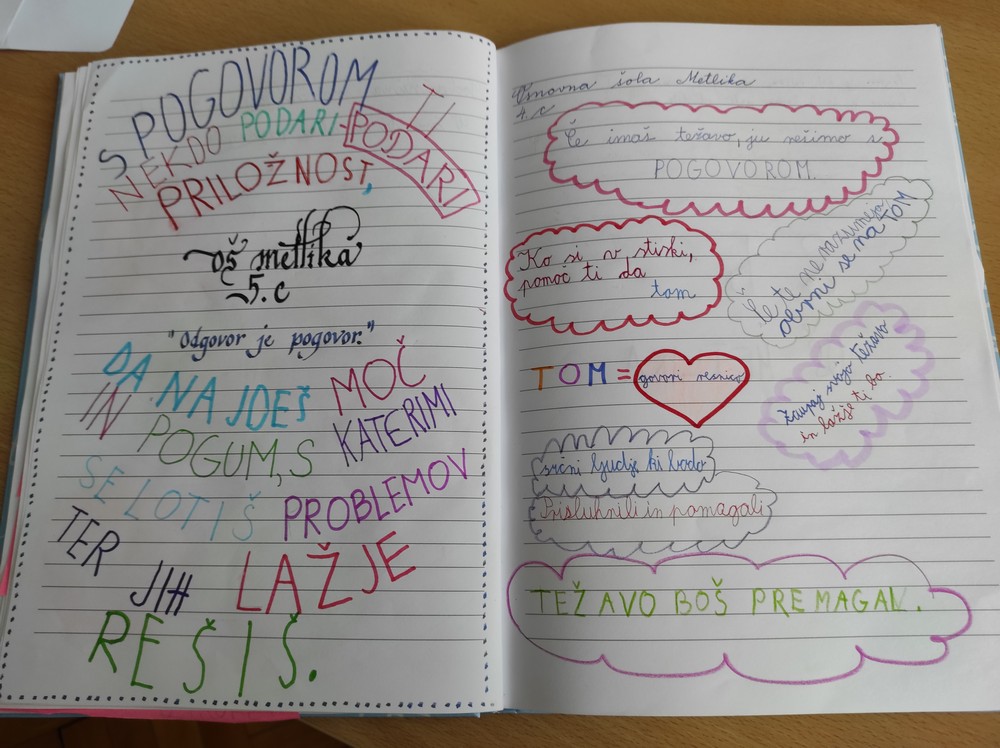 S POGOVOROM TI
NEKDO PODARI PODARI
PRILOŽNOST,
OŠ metlika
5. c
"Odgovor je pogovor."
DA NAJDEŠ MOČ
IN POGUM, S KATERIMI
SE LOTIŠ PROBLEMOV
TER JIH LAŽJE
REŠIŠ.
Osnovna šola Metlika
4. c
Če imaš težavo, ju rešimo s
POGOVOROM.
Ko si v stiski,
pomoč ti da
tom
Če te ne razumejo
obrni se na TOM
TOM = govori resnico
Zaupaj svojo težavo
in lažje ti bo.
srčni ljudje ki bodo
Prisluhnili in pomagali
TEŽAVO BOŠ PREMAGAL.